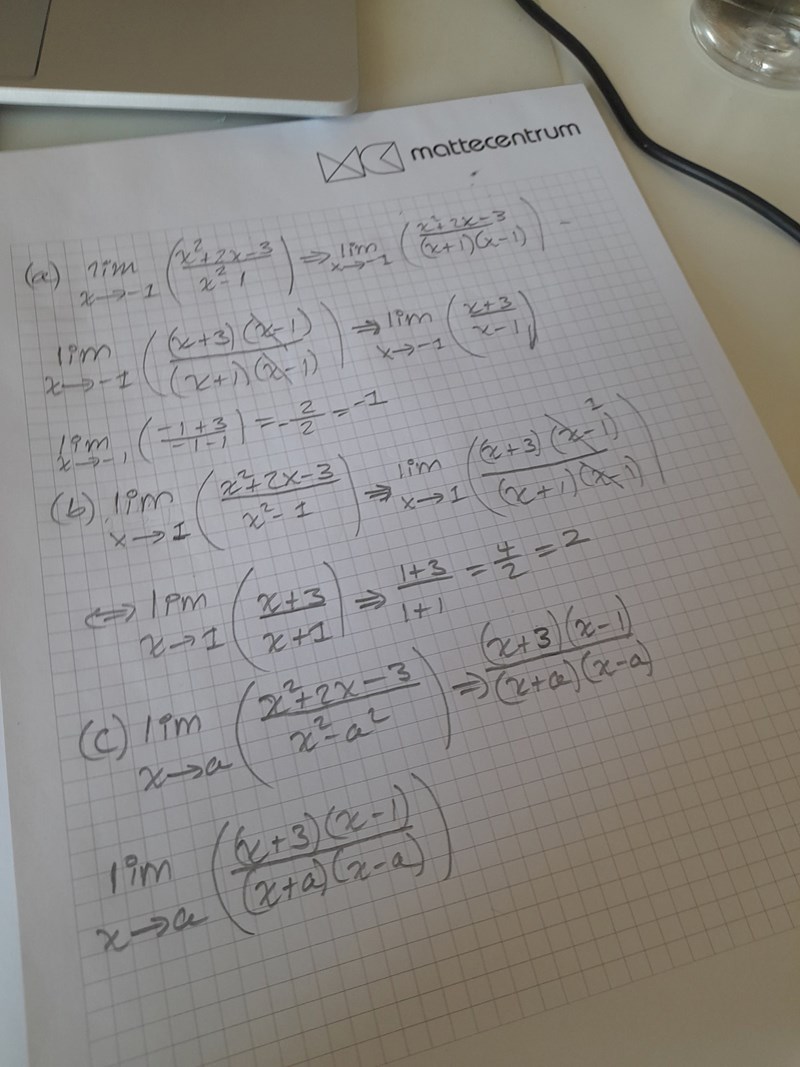 mattecentrum
(a) lim x→-1 ((x²+2x-3)/(x²-1)) ⇒ lim x→-1 ((x²+2x-3)/((x+1)(x-1))) -
lim x→-1 (((x+3)(x-1))/((x+1)(x-1))) ⇒ lim x→-1 ((x+3)/(x-1))
lim x→-1 ((-1+3)/(-1-1)) = -2/2 = -1
(b) lim x→1 ((x²+2x-3)/(x²-1)) ⇒ lim x→1 (((x+3)(x-1)¹)/((x+1)(x-1)))
⇔ lim x→1 ((x+3)/(x+1)) ⇒ (1+3)/(1+1) = 4/2 = 2
(c) lim x→a ((x²+2x-3)/(x²-a²)) ⇒ ((x+3)(x-1))/((x+a)(x-a))
lim x→a (((x+3)(x-1))/((x+a)(x-a)))